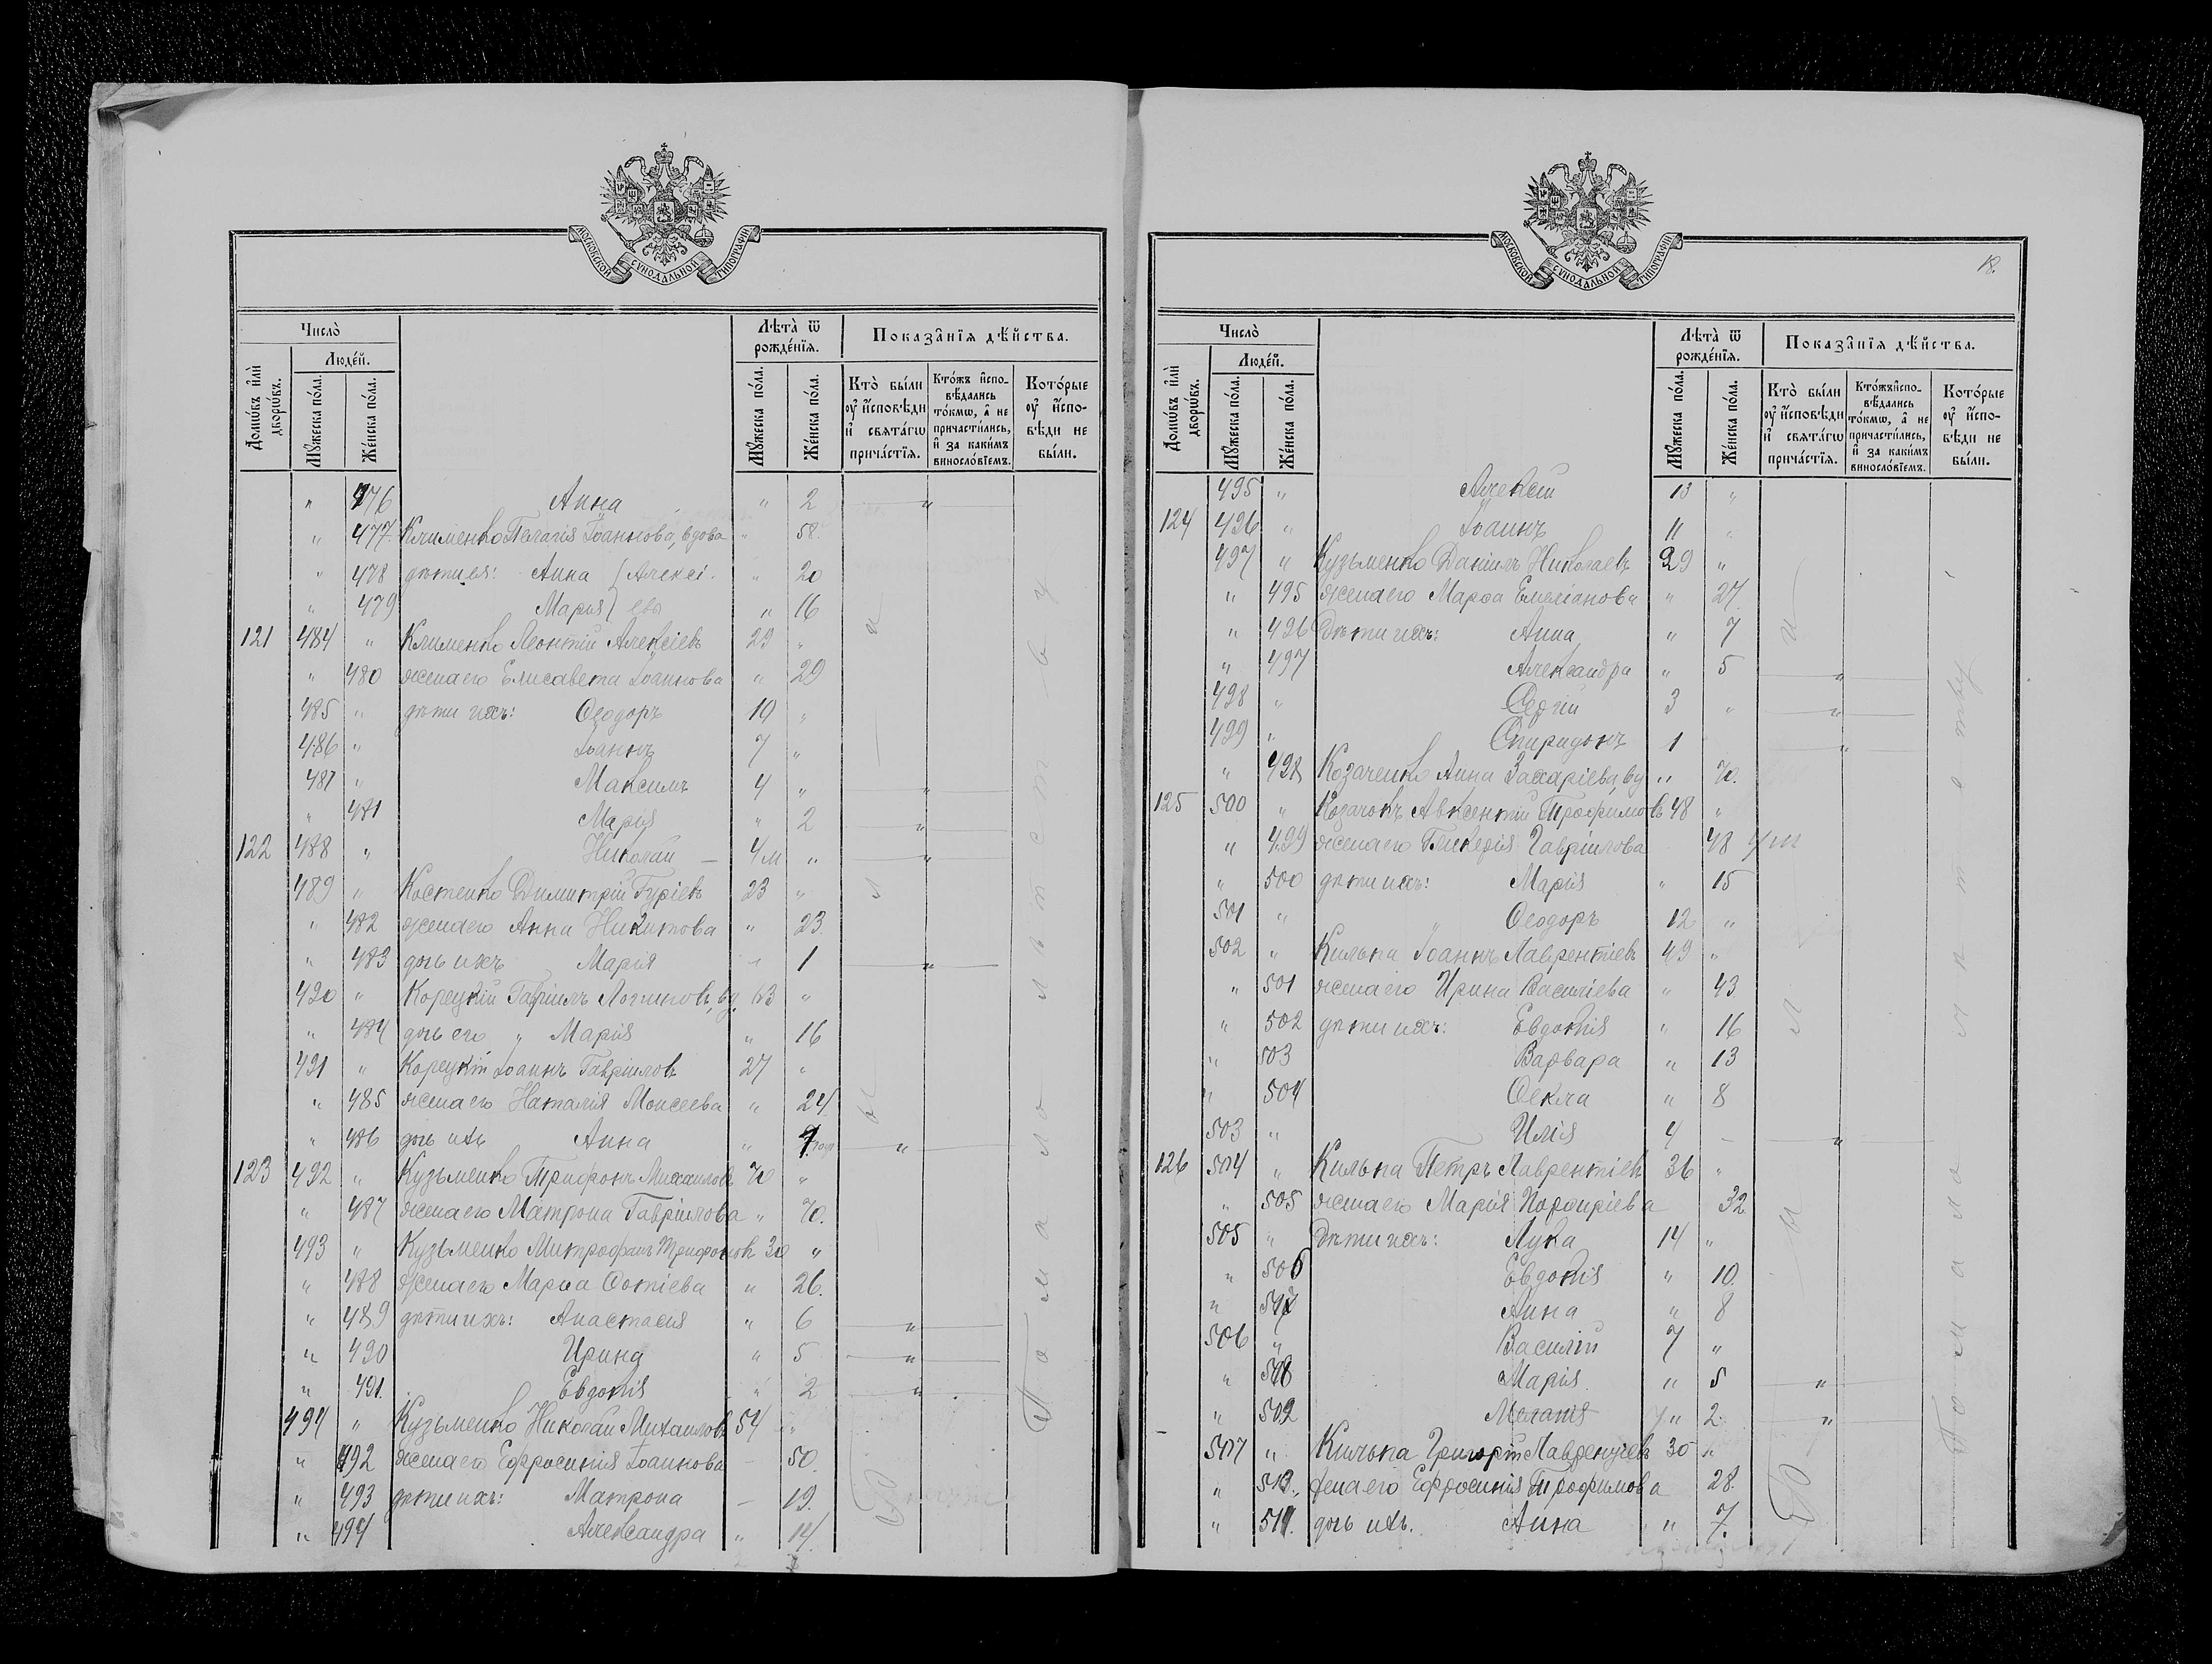 МОСКОВСКОЙ СУНОДАЛЬНОЙ ТИПОГРАФІИ
Число̀
Людей.
Домѡвъ илѝ дворѡвъ.
Мꙋжеска по́ла.
Же́нска по́ла.
Лѣта̀ ѿ рожде́нїѧ.
Мꙋжеска по́ла.
Же́нска по́ла.
Показа̑нїѧ дѣ́йства.
Кто̀ бы́ли оу҆ и҆́сповѣди и҆ свѧта́гѡ прича́стїѧ.
Кто́жъ и҆спо-вѣ́дались то́кмѡ, а҆ не причасти́лись, и҆ за каки́мъ винослові́емъ.
Кото́рые оу҆ и҆спо-вѣди не бы́ли.
" 476 Анна " 2 "
" 477. Клименко Пелагія Іоаннова, вдова " 58.
" 478 дѣти ея: Анна (Алексі- " 20
" 479 Марія) евы " 16
121 484 " Клименко Леонтій Алексіевъ 29 "
" 480 жена его Елисавета Іоаннова " 29
485 " дѣти ихъ: Ѳеодоръ 10 "
486 " Іоаннъ 7 "
487 " Максимъ 4 " "
" 481 Марія " 2 "
122 488 " Николай — 4 м " "
489 " Костенко Димитрій Гуріевъ 23 "
" 482 жена его Анна Никитова " 23.
" 483 дочь ихъ Марія " 1 "
490 " Корецкій Гавріилъ Логиновъ, вд. 63 "
" 484 дочь его " Марія " 16
491 " Корецкій Іоаннъ Гавріиловъ 27 "
" 485 жена его Наталія Моисеева " 24.
" 486 дочь ихъ Анна " 1 "
123 492 " Кузьменко Трифонъ Михаиловъ 70 "
" 487 жена его Матрона Гавріилова " 70.
493 " Кузьменко Митрофанъ Трифоновъ 30 "
" 488 жена его Марѳа Фотіева " 26.
" 489 дѣти ихъ: Анастасія " 6 "
" 490 Ирина " 5 "
" 491. Евдокія " 2 "
494 " Кузьменко Николай Михаиловъ 54 "
" 492 жена его Ефросинія Іоаннова — 50.
" 493 дѣти ихъ: Матрона — 19.
" 494 Александра " 14.
По малолѣтству
МОСКОВСКОЙ СУНОДАЛЬНОЙ ТИПОГРАФІИ
18.
Число̀
Людей.
Домѡвъ илѝ дворѡвъ.
Мꙋжеска по́ла.
Же́нска по́ла.
Лѣта̀ ѿ рожде́нїѧ.
Мꙋжеска по́ла.
Же́нска по́ла.
Показа̑нїѧ дѣ́йства.
Кто̀ бы́ли оу҆ и҆́сповѣди и҆ свѧта́гѡ прича́стїѧ.
Кто́жъ и҆спо-вѣ́дались то́кмѡ, а҆ не причасти́лись, и҆ за каки́мъ винослові́емъ.
Кото́рые оу҆ и҆спо-вѣди не бы́ли.
495 " Алексій 13 "
124 496 " Іоаннъ 11 "
497 " Кузьменко Даніилъ Николаевъ 29 "
" 495 жена его Марѳа Емеліанова " 27.
" 496 Дѣти ихъ: Анна " 7
" 497 Александра " 5 "
498 " Сергій 3 " "
499 " Спиридонъ 1 "
" 498 Козаченко Анна Захаріева, вд " 70.
125 500 " Козачокъ Авксентій Трофимовъ 48 "
" 499 жена его Гликерія Гавріилова 48
" 500 дѣти ихъ: Марія " 15
501 " Ѳеодоръ 12 "
502 " Килька Іоаннъ Лаврентіевъ 49 "
" 501 жена его Ирина Василіева " 43
" 502 дѣти ихъ: Евдокія " 16
" 503 Варвара " 13
" 504 Ѳекла " 8
503 " Илія 4 — "
126 504 " Килька Петръ Лаврентіевъ 36 "
" 505 жена его Марія Порфиріева 32
505 " Дѣти ихъ: Лука 14 "
" 506 Евдокія " 10.
" 507 Анна " 8
506 " Василій 7 "
" 508 Марія " 5 "
" 509 Меланія " 2. "
507 " Килька Григорій Лаврентіевъ 30 "
" 510. жена его Ефросинія Трофимова 28.
" 511. дочь ихъ. Анна " 7.
По малолѣтству